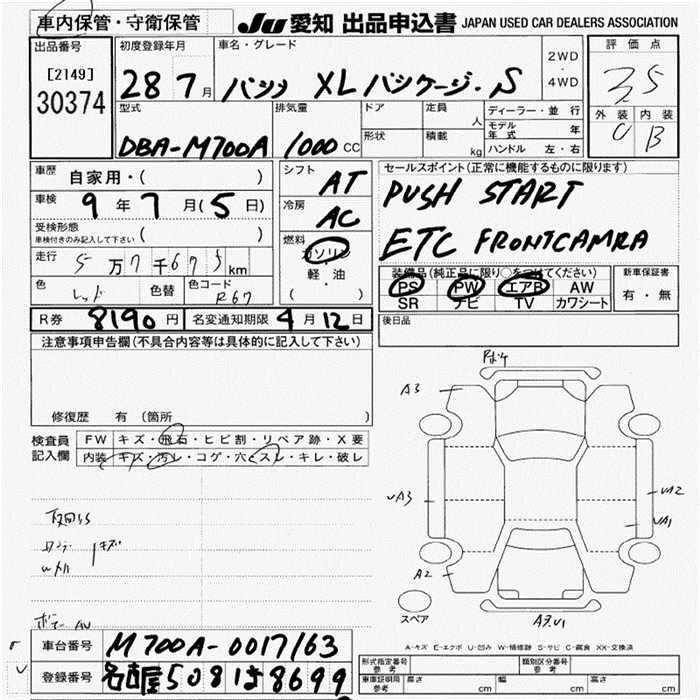 車内保管・守衛保管
JU 愛知 出品申込書 JAPAN USED CAR DEALERS ASSOCIATION
出品番号
[2149]
30374
初度登録年月
28 7月
車名・グレード
パッソ XLパッケージ・S
2WD
・
4WD
評価点
3.5
外装 内装
C B
型式
DBA-M700A
排気量
1000 CC
ドア
形状
定員
人
積載
kg
ディーラー・並行
モデル年式 年
ハンドル 左・右
車歴 自家用・( )
車検 9年7月(5日)
受検形態
車検付きのみ記入して下さい ( )
走行 5万7千675km
色 レッド 色替 色コード R67
シフト AT
冷房 AC
燃料 ガソリン
軽・油
( )
セールスポイント(正常に機能するものに限ります)
PUSH START
ETC FRONTCAMRA
装備品(純正品に限り○をつけてください)
PS PW エアB AW
SR ナビ TV カワシート
新車保証書
有・無
R券 8190円 名変通知期限 4月12日
後日品
注意事項申告欄(不具合内容等は具体的に記入して下さい)
修復歴 有(箇所
検査員記入欄
FW キズ・飛石・ヒビ割・リペア跡・X要
内装 キズ・汚レ・コゲ・穴・スレ・キレ・破レ
A3
UA3
A2
UA2
UA1
スペア
A-キズ E-エクボ U-凹み W-補修跡 S-サビ C-腐食 XX-交換済
車台番号 M700A-0017163
登録番号 名古屋508は8699
形式指定番号
参考
類別区分番号
参考
車車証明局
参考
長さ cm 幅 cm 高さ cm